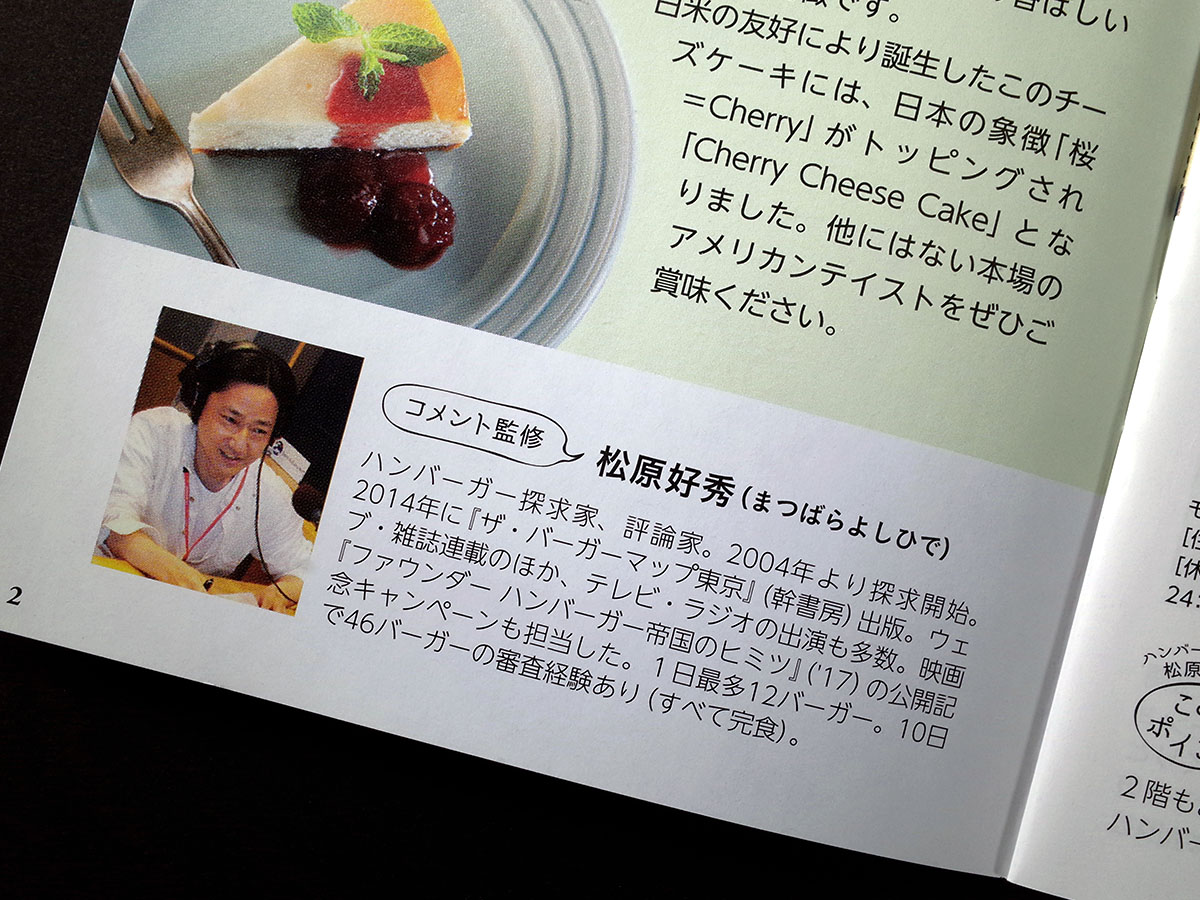 香ばしい
です。
日米の友好により誕生したこのチー
ズケーキには、日本の象徴「桜
=Cherry」がトッピングされ
「Cherry Cheese Cake」とな
りました。他にはない本場の
アメリカンテイストをぜひご
賞味ください。
コメント監修
松原好秀(まつばらよしひで)
ハンバーガー探求家、評論家。2004年より探求開始。
2014年に『ザ・バーガーマップ東京』(幹書房)出版。ウェ
ブ・雑誌連載のほか、テレビ・ラジオの出演も多数。映画
『ファウンダー ハンバーガー帝国のヒミツ』('17)の公開記
念キャンペーンも担当した。1日最多12バーガー。10日
で46バーガーの審査経験あり(すべて完食)。
2
モ
[住
[休
24
ハンバー
松原
この
ポイ
2階も
ハンバー